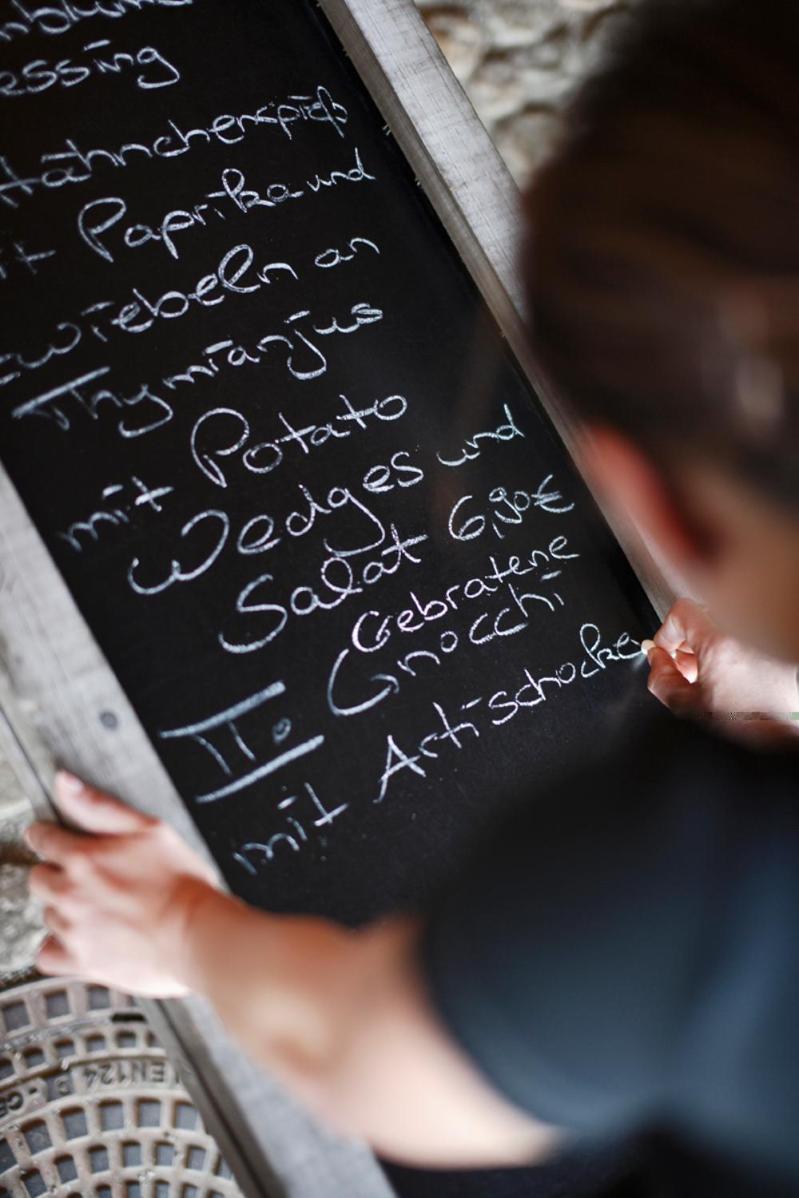 essing
Hähnchenspieß
Paprika und
wiebeln an
Thymianjus
mit Potato
Wedges und
Salat 6,90€
II. Gebratene
Gnocchi
mit Artischocke
EN124